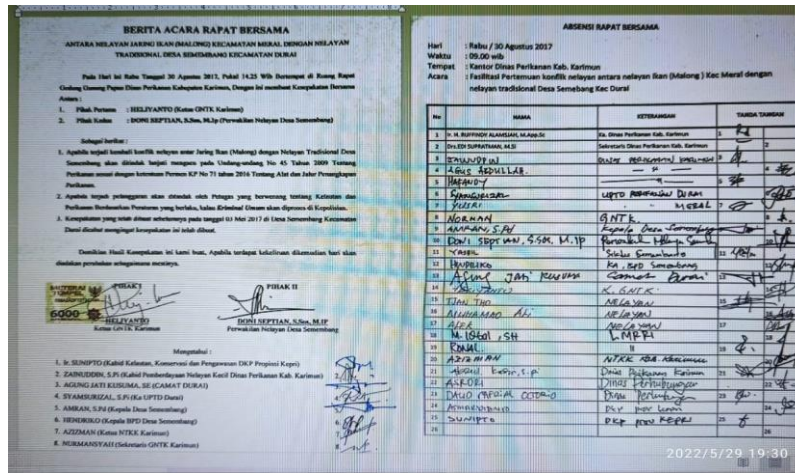 BERITA ACARA RAPAT BERSAMA
ANTARA NELAYAN JARING IKAN (MALONG) KECAMATAN MERAL DENGAN NELAYAN
TRADISIONAL DESA SEMEMBANG KECAMATAN DURAI
Pada Hari ini Rabu Tanggal 30 Agustus 2017, Pukul 14.25 Wib Bertempat di Ruang Rapat
Gedung Gonong Papua Dinas Perikanan Kabupaten Karimun, Dengan ini membuat Kesepakatan Bersama
Antara :
1. Pihak Pertama : HELIYANTO (Ketua GNTK Karimun)
2. Pihak Kedua : DONI SEPTIAN, S.Sos, M.Ip (Perwakilan Nelayan Desa Semembang)
Sebagai berikut :
1. Apabila terjadi kembali konflik nelayan antar Jaring Ikan (Malong) dengan Nelayan Tradisional Desa
Semembang akan ditindak lanjuti mengacu pada Undang-undang No 45 Tahun 2009 Tentang
Perikanan sesuai dengan ketentuan Permen KP No 71 tahun 2016 Tentang Alat dan Jalur Penangkapan
Perikanan.
2. Apabila terjadi pelanggaran akan ditindak oleh Petugas yang berwenang tentang Kelautan dan
Perikanan Berdasarkan Peraturan yang berlaku, kalau Kriminal Umum akan diproses di Kepolisian.
3. Kesepakatan yang telah dibuat sebelumnya pada tanggal 03 Mei 2017 di Desa Semembang Kecamatan
Durai dicabut mengingat kesepakatan ini telah dibuat.
Demikian Hasil Kesepakatan ini kami buat, Apabila terdapat kekeliruan dikemudian hari akan
diadakan perubahan sebagaimana mestinya.
PIHAK I
PIHAK II
6000
HELIYANTO
Ketua GNTK Karimun
DONI SEPTIAN, S.Sos, M.IP
Perwakilan Nelayan Desa Semembang
Mengetahui :
1. Ir. SUNIPTO (Kabid Kelautan, Konservasi dan Pengawasan DKP Propinsi Kepri)
2. ZAINUDDIN, S.Pi (Kabid Pemberdayaan Nelayan Kecil Dinas Perikanan Kab. Karimun)
3. AGUNG JATI KUSUMA, SE (CAMAT DURAI)
4. SYAMSURIZAL, S.Pi (Ka UPTD Durai)
5. AMRAN, S.Pd (Kepala Desa Semembang)
6. HENDRIKO (Kepala BPD Desa Semembang)
7. AZIZMAN (Ketua NTKK Karimun)
8. NURMANSYAH (Sekretaris GNTK Karimun)
ABSENSI RAPAT BERSAMA
Hari : Rabu / 30 Agustus 2017
Waktu : 09.00 wib
Tempat : Kantor Dinas Perikanan Kab. Karimun
Acara : Fasilitasi Pertemuan konflik nelayan antara nelayan Ikan (Malong ) Kec Meral dengan
nelayan tradisional Desa Semebang Kec Durai
No NAMA KETERANGAN TANDA TANGAN
1 Ir. H. RUFFINDY ALAMSJAH, M.App.Sc Ka. Dinas Perikanan Kab. Karimun 1
2 Drs.EDI SUPRATMAN, M.Si Sekretaris Dinas Perikanan Kab. Karimun 2
3 ZAINUDDIN DINAS PERIKANAN KARIMUN 3
4 AGUS ABDULLAH
5 5
6 SYAMSURIZAL UPTD PERIKANAN DURAI
7 MERAL 7
8 NORMAN GNTK 8
9 AMRAN, S.Pd Kepala Desa Semembang
10 DONI SEPTIAN, S.SOS, M.IP
11
12 HENDRIKO KA. BPD Semembang
13 AGUNG JATI KUSUMA Camat Durai 13
14 K. GNTK
15 TJAN THO NELAYAN 15
16 MUHAMAD ALI NELAYAN
17 NELAYAN 17
18 M. IQBAL, SH LMPRI
19 RONAL 19
20 AZIZMAN NTKK KAB. Karimun
21 Dinas Perikanan Karimun 21
22 ASRORI Dinas Perhubungan 22
23 DAUD Dinas Perhubungan 23
24 24
25 SUNIPTO DKP PROV KEPRI 25
26 26
2022/5/29 19:30